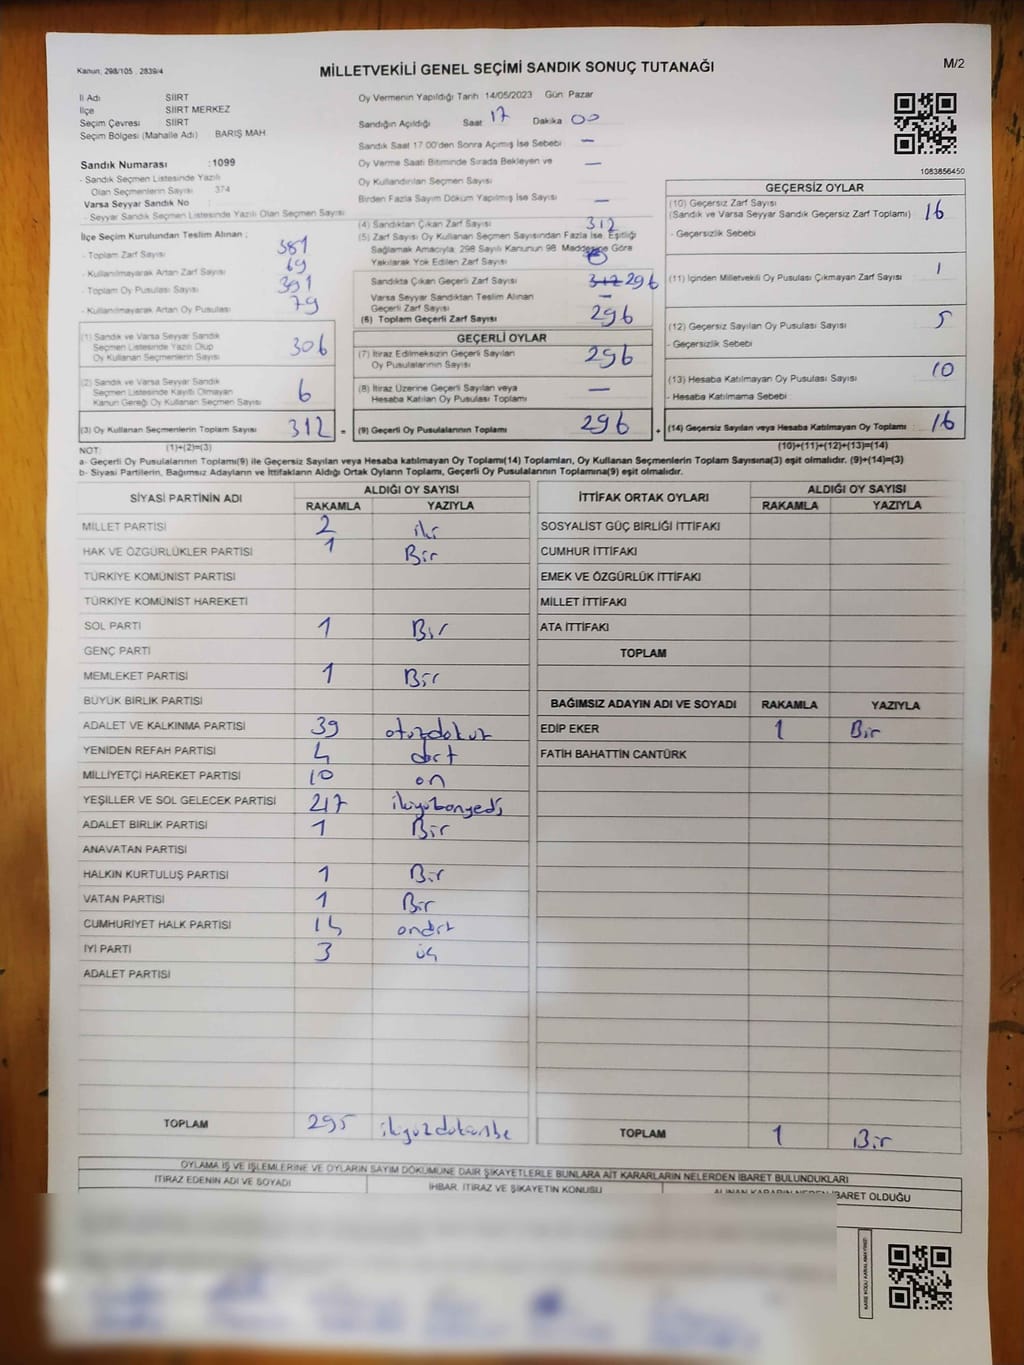 Kanun; 298/105 , 2839/4
MİLLETVEKİLİ GENEL SEÇİMİ SANDIK SONUÇ TUTANAĞI
M/2
İl Adı SİİRT
İlçe SİİRT MERKEZ
Seçim Çevresi SİİRT
Seçim Bölgesi (Mahalle Adı) BARIŞ MAH.
Sandık Numarası : 1099
- Sandık Seçmen Listesinde Yazılı
Olan Seçmenlerin Sayısı 374
Varsa Seyyar Sandık No
- Seyyar Sandık Seçmen Listesinde Yazılı Olan Seçmen Sayısı
İlçe Seçim Kurulundan Teslim Alınan ;
- Toplam Zarf Sayısı 381
- Kullanılmayarak Artan Zarf Sayısı 69
- Toplam Oy Pusulası Sayısı 391
- Kullanılmayarak Artan Oy Pusulası 79
(1) Sandık ve Varsa Seyyar Sandık
Seçmen Listesinde Yazılı Olup
Oy Kullanan Seçmenlerin Sayısı 306
(2) Sandık ve Varsa Seyyar Sandık
Seçmen Listesinde Kayıtlı Olmayan
Kanun Gereği Oy Kullanan Seçmen Sayısı 6
(3) Oy Kullanan Seçmenlerin Toplam Sayısı 312 =
Oy Vermenin Yapıldığı Tarih 14/05/2023 Gün Pazar
Sandığın Açıldığı Saat 17 Dakika 00
Sandık Saat 17:00'den Sonra Açılmış İse Sebebi —
Oy Verme Saati Bitiminde Sırada Bekleyen ve —
Oy Kullandırılan Seçmen Sayısı
Birden Fazla Sayım Döküm Yapılmış İse Sayısı —
(4) Sandıktan Çıkan Zarf Sayısı 312
(5) Zarf Sayısı Oy Kullanan Seçmen Sayısından Fazla İse, Eşitliği
Sağlamak Amacıyla; 298 Sayılı Kanunun 98. Maddesine Göre
Yakılarak Yok Edilen Zarf Sayısı
Sandıkta Çıkan Geçerli Zarf Sayısı 312 296
Varsa Seyyar Sandıktan Teslim Alınan
Geçerli Zarf Sayısı —
(6) Toplam Geçerli Zarf Sayısı 296
GEÇERLİ OYLAR
(7) İtiraz Edilmeksizin Geçerli Sayılan
Oy Pusulalarının Sayısı 296
(8) İtiraz Üzerine Geçerli Sayılan veya
Hesaba Katılan Oy Pusulası Toplamı —
(9) Geçerli Oy Pusulalarının Toplamı 296 +
1083856450
GEÇERSİZ OYLAR
(10) Geçersiz Zarf Sayısı
(Sandık ve Varsa Seyyar Sandık Geçersiz Zarf Toplamı) 16
- Geçersizlik Sebebi
(11) İçinden Milletvekili Oy Pusulası Çıkmayan Zarf Sayısı 1
(12) Geçersiz Sayılan Oy Pusulası Sayısı 5
- Geçersizlik Sebebi
(13) Hesaba Katılmayan Oy Pusulası Sayısı 10
- Hesaba Katılmama Sebebi
(14) Geçersiz Sayılan veya Hesaba Katılmayan Oy Toplamı : 16
NOT: (1)+(2)=(3) (10)+(11)+(12)+(13)=(14)
a- Geçerli Oy Pusulalarının Toplamı(9) ile Geçersiz Sayılan veya Hesaba katılmayan Oy Toplamı(14) Toplamları, Oy Kullanan Seçmenlerin Toplam Sayısına(3) eşit olmalıdır. (9)+(14)=(3)
b- Siyasi Partilerin, Bağımsız Adayların ve İttifakların Aldığı Ortak Oyların Toplamı, Geçerli Oy Pusulalarının Toplamına(9) eşit olmalıdır.
SİYASİ PARTİNİN ADI ALDIĞI OY SAYISI
RAKAMLA YAZIYLA
MİLLET PARTİSİ 2 iki
HAK VE ÖZGÜRLÜKLER PARTİSİ 1 Bir
TÜRKİYE KOMÜNİST PARTİSİ
TÜRKİYE KOMÜNİST HAREKETİ
SOL PARTİ 1 Bir
GENÇ PARTİ
MEMLEKET PARTİSİ 1 Bir
BÜYÜK BİRLİK PARTİSİ
ADALET VE KALKINMA PARTİSİ 39 otuzdokuz
YENİDEN REFAH PARTİSİ 4 dört
MİLLİYETÇİ HAREKET PARTİSİ 10 on
YEŞİLLER VE SOL GELECEK PARTİSİ 217 ikiyüzonyedi
ADALET BİRLİK PARTİSİ 1 Bir
ANAVATAN PARTİSİ
HALKIN KURTULUŞ PARTİSİ 1 Bir
VATAN PARTİSİ 1 Bir
CUMHURİYET HALK PARTİSİ 14 ondört
İYİ PARTİ 3 üç
ADALET PARTİSİ
TOPLAM 295 ikiyüzdoksanbe
İTTİFAK ORTAK OYLARI ALDIĞI OY SAYISI
RAKAMLA YAZIYLA
SOSYALİST GÜÇ BİRLİĞİ İTTİFAKI
CUMHUR İTTİFAKI
EMEK VE ÖZGÜRLÜK İTTİFAKI
MİLLET İTTİFAKI
ATA İTTİFAKI
TOPLAM
BAĞIMSIZ ADAYIN ADI VE SOYADI RAKAMLA YAZIYLA
EDİP EKER 1 Bir
FATİH BAHATTİN CANTÜRK
TOPLAM 1 Bir
OYLAMA İŞ VE İŞLEMLERİNE VE OYLARIN SAYIM DÖKÜMÜNE DAİR ŞİKAYETLERLE BUNLARA AİT KARARLARIN NELERDEN İBARET BULUNDUKLARI
İTİRAZ EDENİN ADI VE SOYADI
İHBAR, İTİRAZ VE ŞİKAYETİN KONUSU
ALINAN KARARIN NEDEN İBARET OLDUĞU
KARE KODU KARALAMAYINIZ!